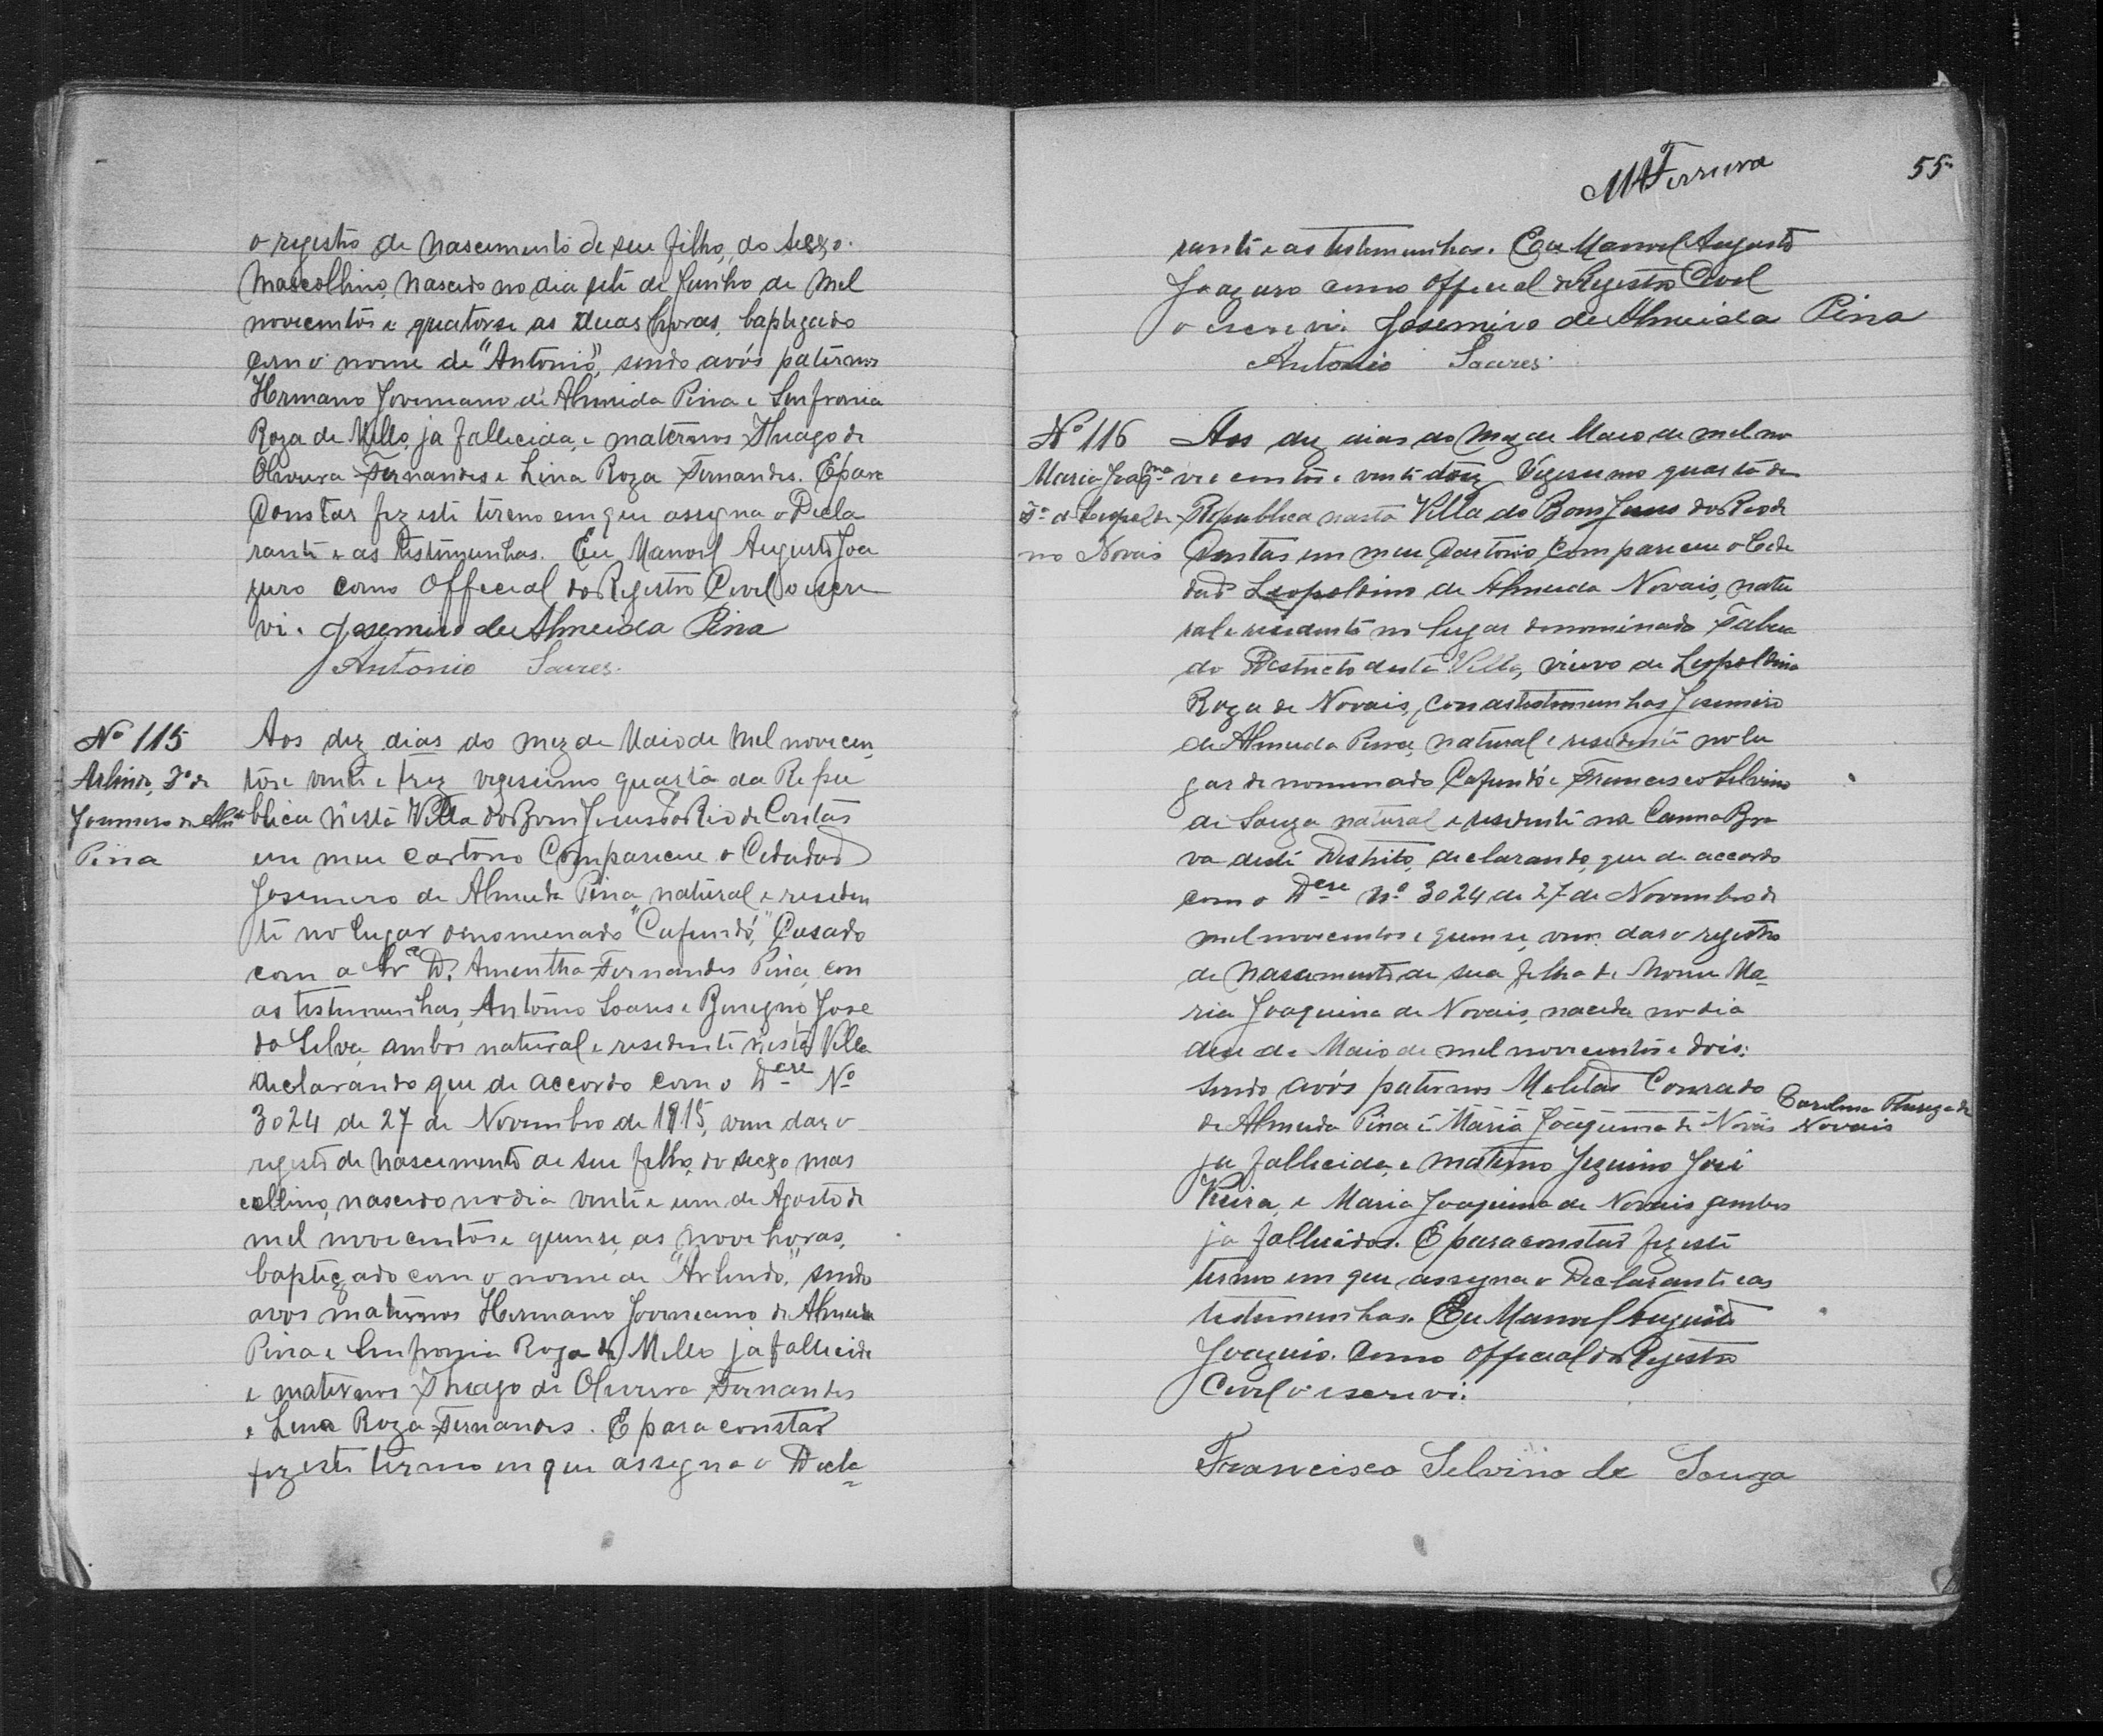 o registro de nascimento de seu filho, do sexxo
Mascollino, nascido no dia sete de Junho de Mil
novecentos e quatorse as duas horas, baptizado
com o nome de "Antonio", sendo avós paternos
Hermano Joveniano de Almeida Pina e Sinfronia
Roza de Mello, ja fallecida, e maternos Thiago de
Oliveira Fernandes e Lina Roza Fernandes. E para
Constar fiz este termo em que assigna o Decla
rante e as testimunhas. Eu Manoel Augusto Joa
zeiro como Official do Registro Civel o escre
vi. Josemiro de Almeida Pina
Antonio Soares.
Nº 115
Arlindo, Fº de
Josemiro de Almda
Pina
Aos dez dias do mez de Maio de Mil novecen
tos e vinte e trez vigessimo quarta da Repu
blica n'esta Villa do Bom Jesus do Rio de Contas
em meu cartorio Compareceu o Cidadao
Josemiro de Almeida Pina, natural e residen
te no lugar denomenado "Cafundó," Casado
com a Sra D. Amentha Fernandes Pina, con
as testemunhas, Antonio Soares e Benigno Jose
da Silva, ambos natural e residente n'esta Villa
declarando que de accordo com o Dcre Nº
3024 de 27 de Novembro de 1915, vem dar o
registo de Nascimento de seu filho, do sexxo mas
collino, nascido no dia vinte e um de Agosto de
mil novecentos e quinse, as nove horas,
baptizado com o nome de "Arlindo", sendo
avos maternos Hermano Joveniano de Almeida
Pina e Sinfronia Roza de Mello ja fallecida
e maternos Thiago de Oliveira Fernandes
e Lina Roza Fernandes. E para constar
fiz este termo em que assigna o Decla-
MAFerreira
55
rante e as testemunhas. Eu Manoel Augusto
Joazeiro como Official do Registro Civel
o escrevi. Josemiro de Almeida Pina
Antonio Soares
Nº 116
Maria Joaqna
Fª de Leopoldi
no Novais
Aos dez dias do Mez de Maio de mil no
ve centos e vinte dois Vigessimo quarta da
Republica nasta Villa do Bom Jesus do Rio de
Contas em meu Cartorio Compareceu o Cida
dao Leopoldino de Almeida Novais, natu
ral e residente no lugar denominado
do Destricto desta Villa, viuvo de Leopoldina
Roza de Novais, con as testemunhas Josemiro
de Almeida Pina, natural e residente no lu
gar denominado Cafundó e Francisco Silvino
de Souza natural e residente na Canna Bra
va deste Destrito, declarando, que de accordo
com o Dcre Nº 3024 de 27 de Novembro de
mil novecentos e quinse, vem dar o registro
de Nascimento de sua filha de Nome Ma-
ria Joaquina de Novais, nacida no dia
de Maio de mil novecentos e dois:
sendo avós paternos Conrado
de Almeida Pina e Maria Joaquina de Novais
Carolina Thereza de
Novais
ja fallecida, e materno José
Vieira, e Maria Joaquina de Novais ambos
ja fallecidos. E para constar fiz este
termo em que assigna o Declarante e as
testemunhas. Eu Manoel Augusto
Joazeiro. Como Official do Registro
Civel o escrevi.
Francisco Silvino de Souza